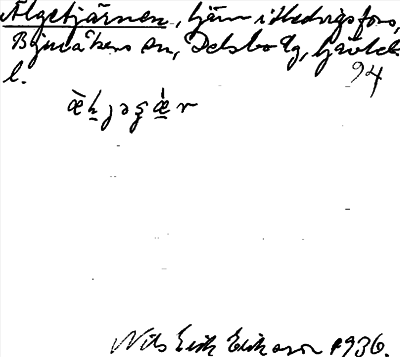 Älgetjärnen, tjärn i Hedvigsfors,
Bjuråkers sn, Delsbo tg, Gävleb.
l. 94
Nils Erik Erikson 1936.